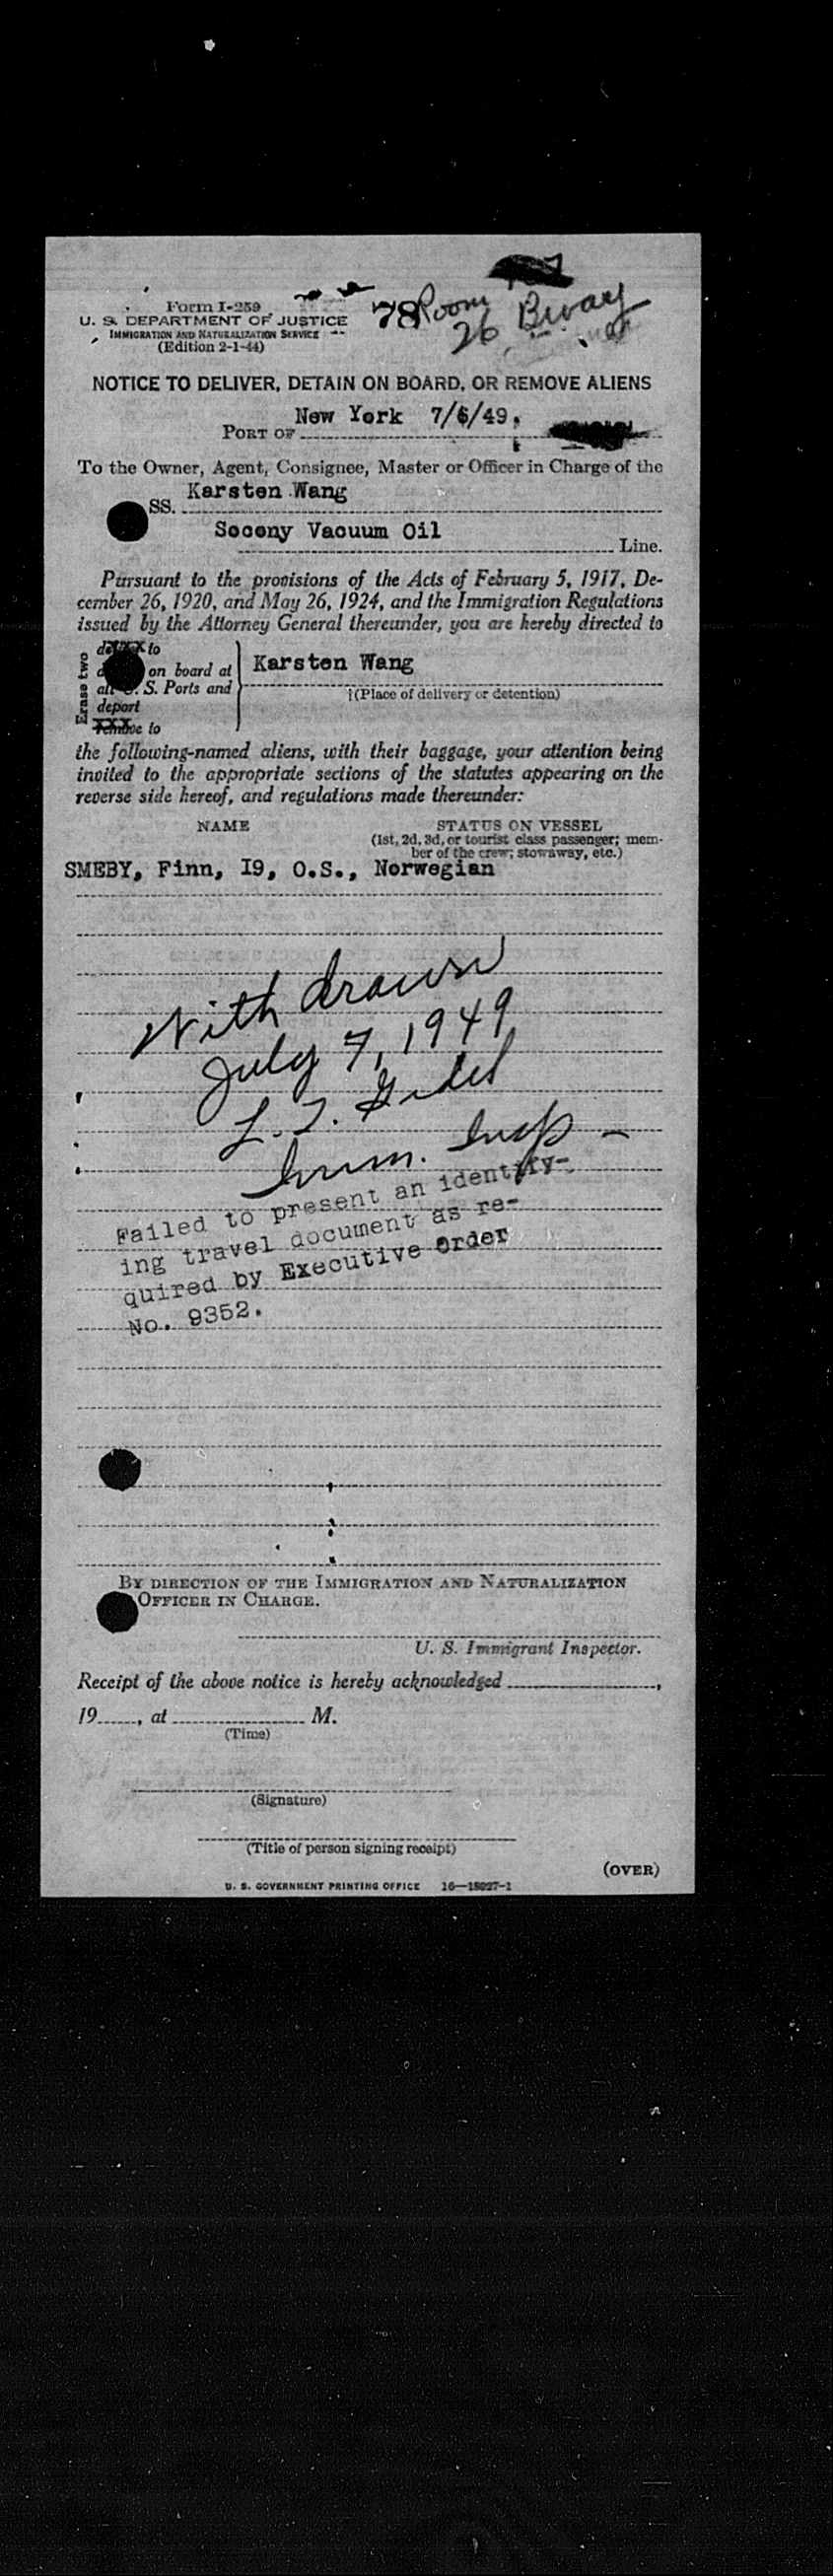 Form I-259
U. S. DEPARTMENT OF JUSTICE
IMMIGRATION AND NATURALIZATION SERVICE
(Edition 2-1-44)
78 Room
26 Bway
NOTICE TO DELIVER, DETAIN ON BOARD, OR REMOVE ALIENS
New York 7/6/49.
PORT OF
To the Owner, Agent, Consignee, Master or Officer in Charge of the
Karsten Wang
SS.
Socony Vacuum Oil
Line.
Pursuant to the provisions of the Acts of February 5, 1917, De-
cember 26, 1920, and May 26, 1924, and the Immigration Regulations
issued by the Attorney General thereunder, you are hereby directed to
Erase two
to
on board at
Karsten Wang
S. Ports and
†(Place of delivery or detention)
deport
remove to
the following-named aliens, with their baggage, your attention being
invited to the appropriate sections of the statutes appearing on the
reverse side hereof, and regulations made thereunder:
NAME STATUS ON VESSEL
(1st, 2d, 3d, or tourist class passenger; mem-
ber of the crew; stowaway, etc.)
SMEBY, Finn, I9, O.S., Norwegian
With drawn
July 7, 1949
Imm. Insp -
Failed to present an identify-
ing travel document as re-
quired by Executive Order
No. 9352.
BY DIRECTION OF THE IMMIGRATION AND NATURALIZATION
OFFICER IN CHARGE.
U. S. Immigrant Inspector.
Receipt of the above notice is hereby acknowledged ,
19 , at M.
(Time)
(Signature)
(Title of person signing receipt)
(OVER)
U. S. GOVERNMENT PRINTING OFFICE 16—18027-1